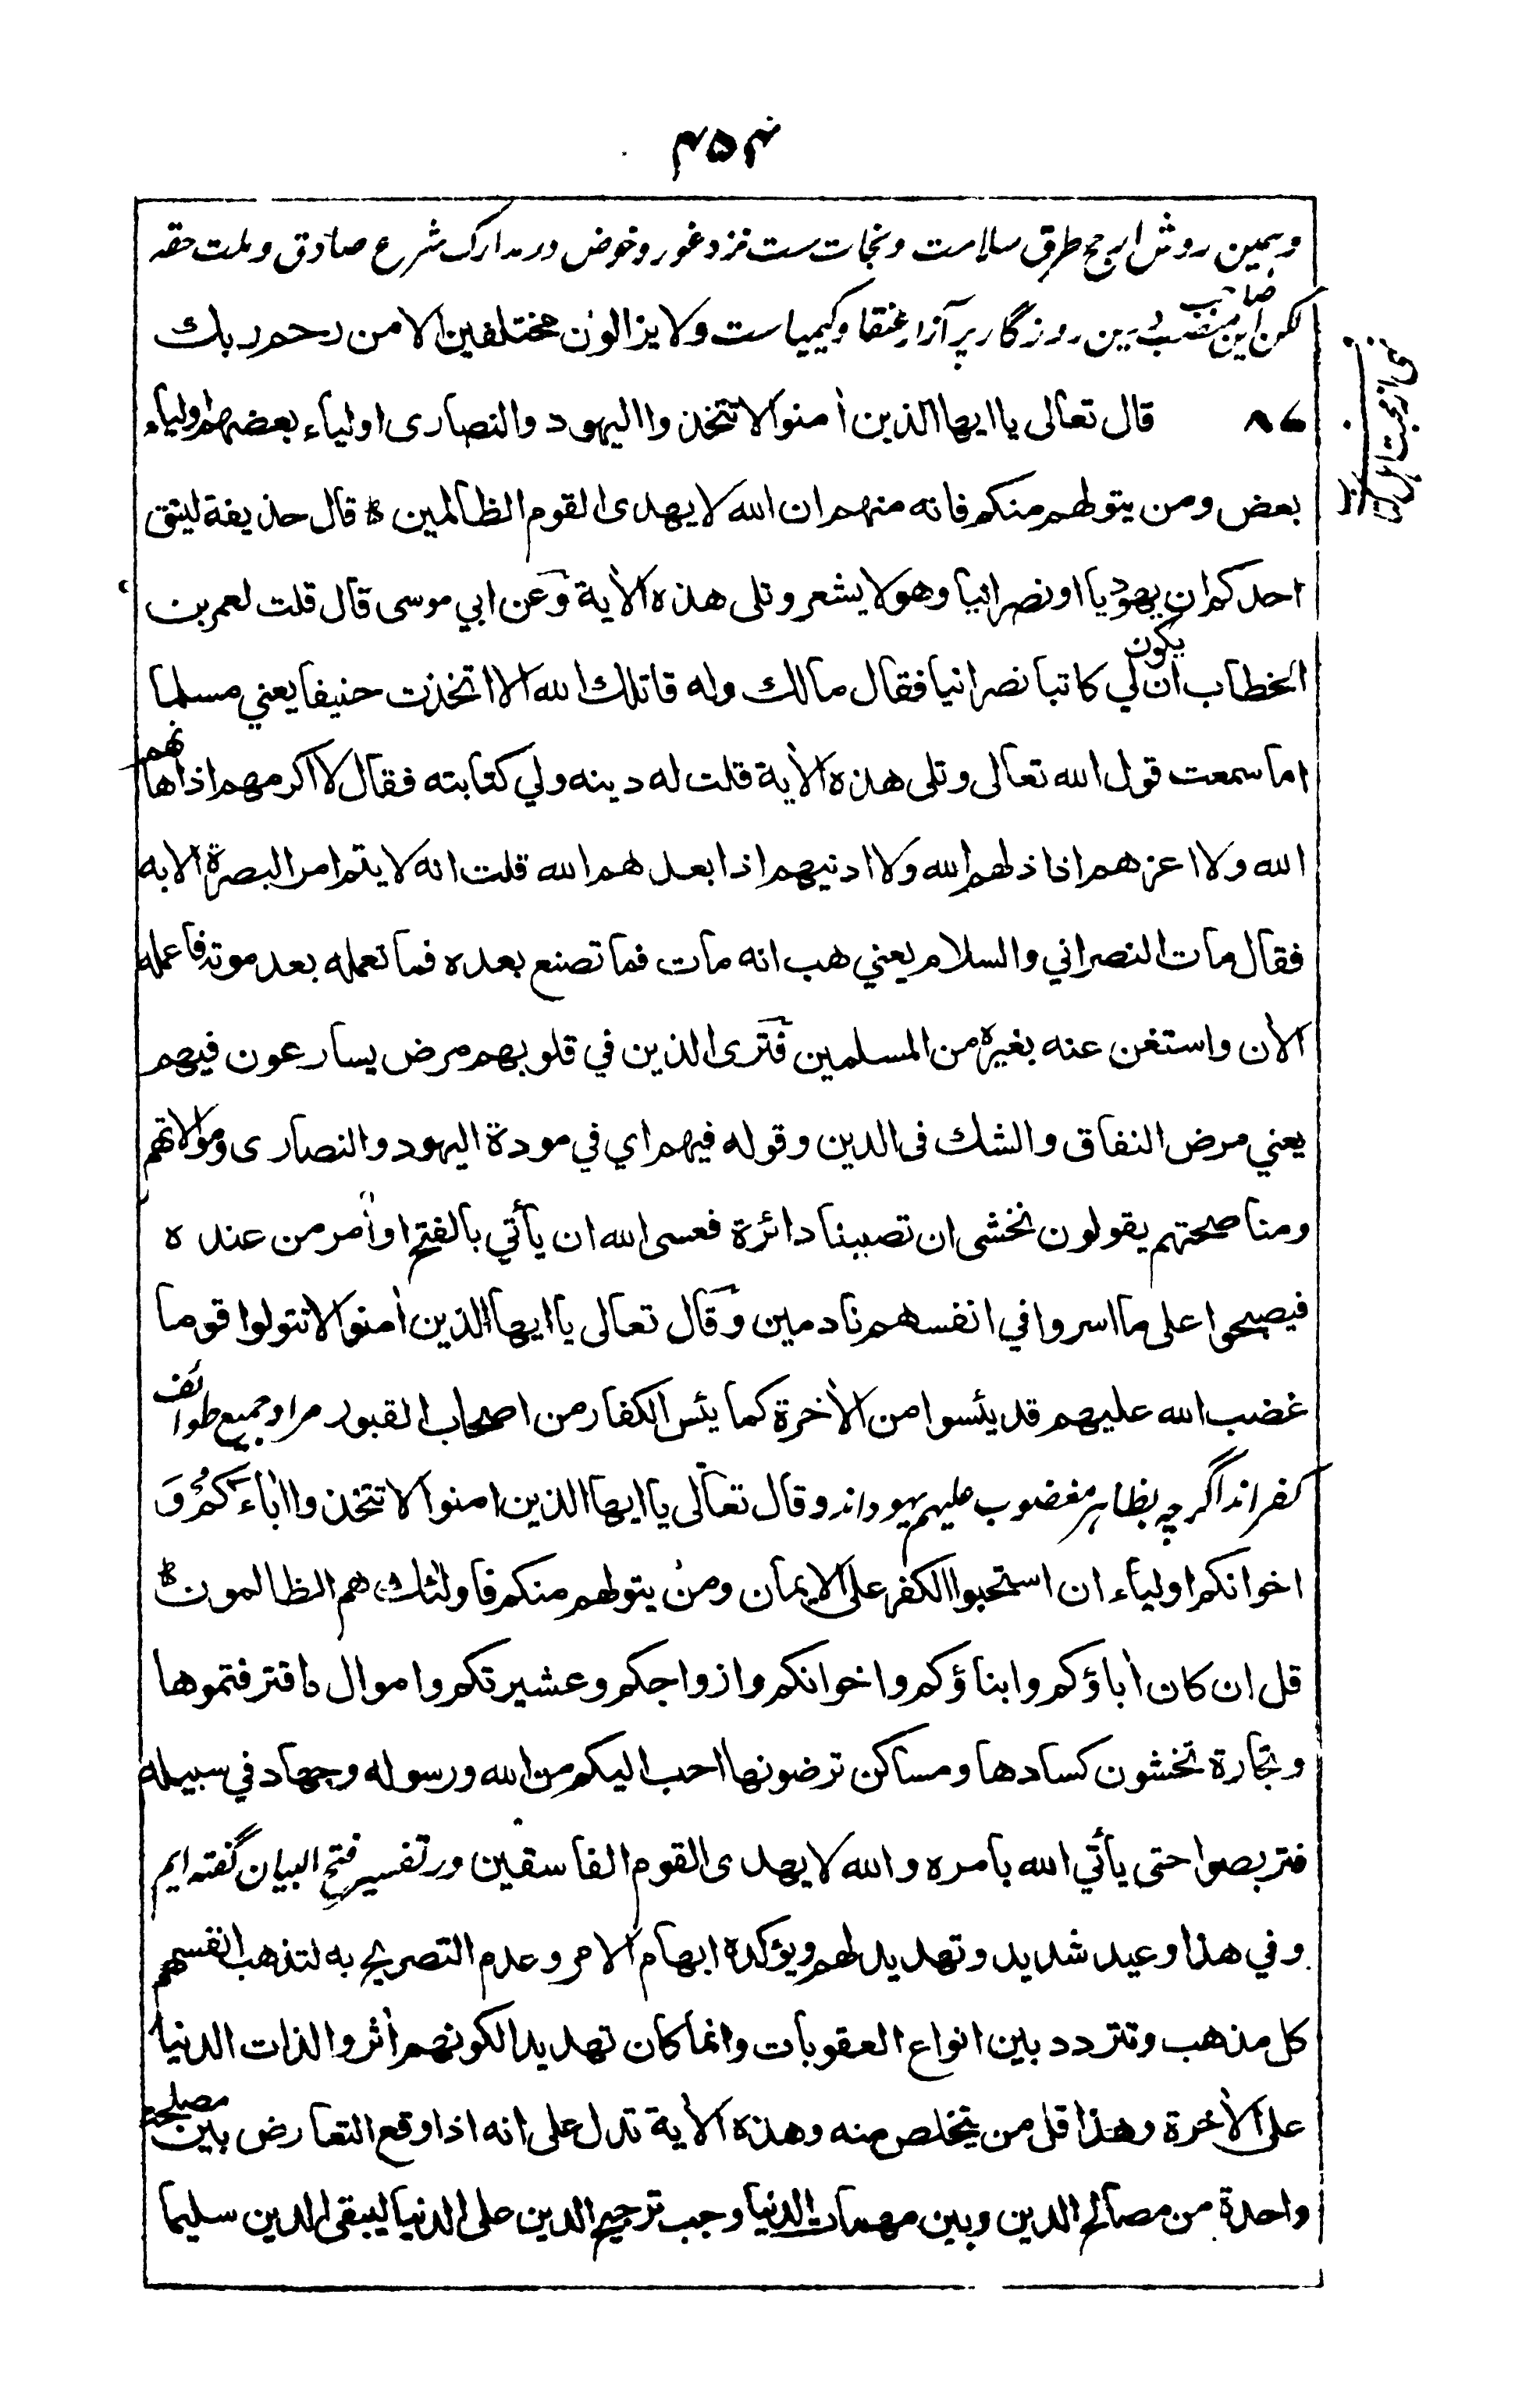 ۴۵۴
وہمین روش ارجح طرق سلامت ونجات ست نزد غور وخوض در مدارک شرع صادق وملت حقه
لکن این صاحب منصب درین روزگار پر آزار عنقا وکیمیاست ولا یزالون مختلفین الا من رحم ربك
۸۶ قال تعالى يا ايها الذين أمنوا لا تتخذوا اليهود والنصارى اولياء بعضهم اولياء
بعض ومن يتولهم منكم فانه منهم ان الله لا يهدى القوم الظالمين ه قال حذيفة ليتق
احدكم ان يكون يهوديا او نصرانيا وهو لا يشعر وتلى هذه الأية وعن ابي موسى قال قلت لعمر بن
الخطاب ان لي كاتبا نصرانيا فقال مالك وله قاتلك الله الا اتخذت حنيفا يعني مسلما
اما سمعت قول الله تعالى وتلى هذه الأية قلت له دينه ولي كتابته فقال لا اكرمهم اذ اهانهم
الله ولا اعزهم اذا ذلهم الله ولا ادنيهم اذا بعدهم الله قلت انه لا يتم امر البصرة الا به
فقال مات النصراني والسلام يعني هب انه مات فما تصنع بعده فما تعمله بعد موته فاعمله
الأن واستغن عنه بغيره من المسلمين فترى الذين في قلوبهم مرض يسارعون فيهم
يعني مرض النفاق والشك فى الدين وقوله فيهم اي في مودة اليهود والنصارى وموالاتهم
ومناصحتهم يقولون نخشى ان تصيبنا دائرة فعسى الله ان يأتي بالفتح او أمر من عنده
فيصبحوا على ما اسروا في انفسهم نادمين وقال تعالى يا ايها الذين أمنوا لا تتولوا قوما
غضب الله عليهم قد يئسوا من الأخرة كما يئس الكفار من اصحاب القبور مراد جميع طوائف
کفراند اگرچه بظاهر مغضوب علیهم یهوداند وقال تعالى يا ايها الذين امنوا لا تتخذوا اٰباءكم و
اخوانكم اولياء ان استحبوا الكفر على الايمان ومن يتولهم منكم فاولئك هم الظالمون ه
قل ان كان أباؤكم وابناؤكم واخوانكم وازواجكم وعشيرتكم واموال ن اقترفتموها
وتجارة تخشون كسادها ومساكن ترضونها احب اليكم من الله ورسوله وجهاد في سبيله
فتربصوا حتى يأتي الله بامره والله لا يهدى القوم الفاسقين ودر تفسیر فتح البیان گفته ایم
وفي هذا وعيد شديد وتهديد لهم ويؤكده ابهام الامر وعدم التصريح به لتذهب انفسهم
كل مذهب وتتردد بين انواع العقوبات وانما كان تهديدا لكونهم أثروا لذات الدنيا
على الأخرة وهذا قل من يتخلص منه وهذه الأية تدل على انه اذا وقع التعارض بين مصلحة
واحدة من مصالح الدين وبين مهمات الدنيا وجب ترجيح الدين على الدنيا ليبقى الدين سليما
نهی از محبت اہل کتاب